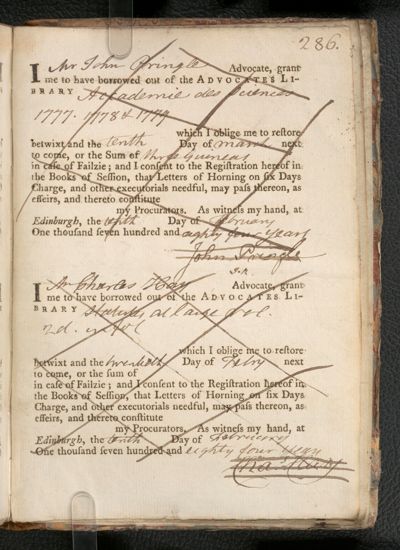 286.
I Mr John Pringle Advocate, grant
me to have borrowed out of the ADVOCATES LI-
BRARY Accademie des Sciences
1777. 1778 & 1779
which I oblige me to restore
betwixt and the tenth Day of march next
to come, or the Sum of three Guineas
in case of Failzie; and I consent to the Registration hereof in
the Books of Session, that Letters of Horning on six Days
Charge, and other executorials needful, may pass thereon, as
effeirs, and thereto constitute
my Procurators. As witness my hand, at
Edinburgh, the tenth Day of February
One thousand seven hundred and eighty four years
John Pringle
I Mr Charles Hay Advocate, grant
me to have borrowed out of the ADVOCATES LI-
BRARY Statutes at large vol.
2d.
which I oblige me to restore
betwixt and the twentieth Day of Febry next
to come, or the sum of
in case of Failzie; and I consent to the Registration hereof in
the Books of Session, that Letters of Horning on six Days
Charge, and other executorials needful, may pass thereon, as
effeirs, and thereto constitute
my Procurators. As witness my hand, at
Edinburgh, the tenth Day of February
One thousand seven hundred and eighty four years
Cha: Hay